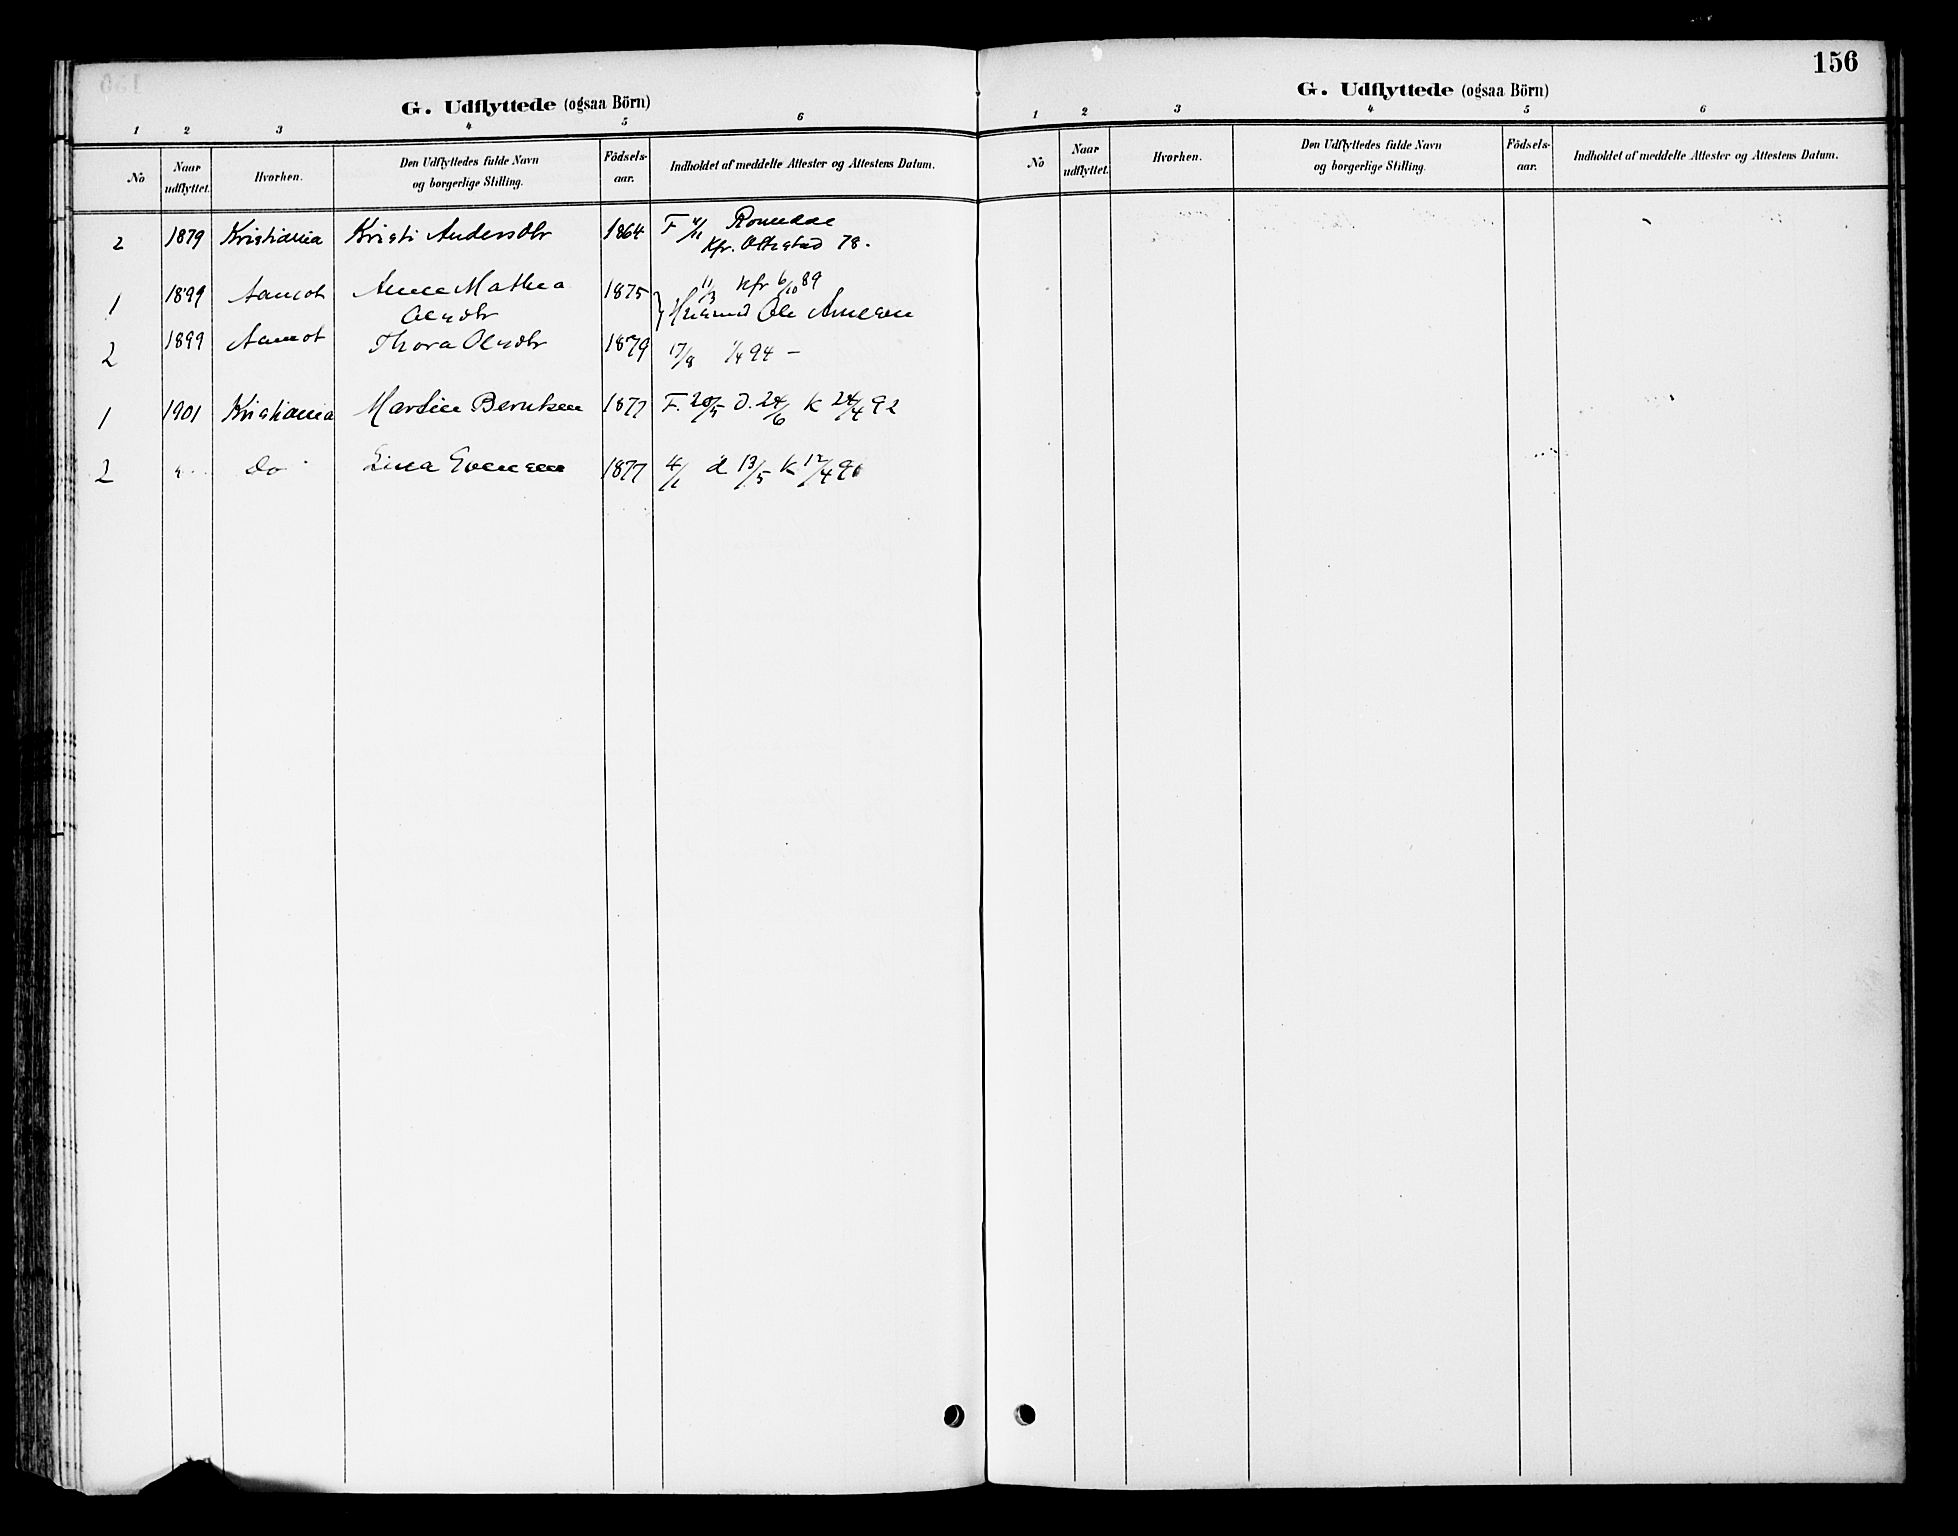 G. Udflyttede (ogsaa Börn)
1 2 3 4 5 6
No
Naar udflyttet.
Hvorhen.
Den Udflyttedes fulde Navn og borgerlige Stilling.
Födsels-aar.
Indholdet af meddelte Attester og Attestens Datum.
2 1879 Kristiania Kristi Andersdtr 1864 F 4/11 Romedal
Kfr. Ottestad 78.
1 1899 Aamot Anne Mathea 1875 11/3 Kfr 6/10 89
Olsdtr Ole Arnesen
2 1899 Aamot Thora Olsdtr 1879 17/8 1/4 94 –
1 1901 Kristiania Martin Berntsen 1877 F. 20/5 D. 24/6 K 24/4 92
2 " Do Lina Evensen 1877 4/1 d 13/5 K 12/4 91
156
G. Udflyttede (ogsaa Börn)
1 2 3 4 5 6
No
Naar udflyttet.
Hvorhen.
Den Udflyttedes fulde Navn og borgerlige Stilling.
Födsels-aar.
Indholdet af meddelte Attester og Attestens Datum.